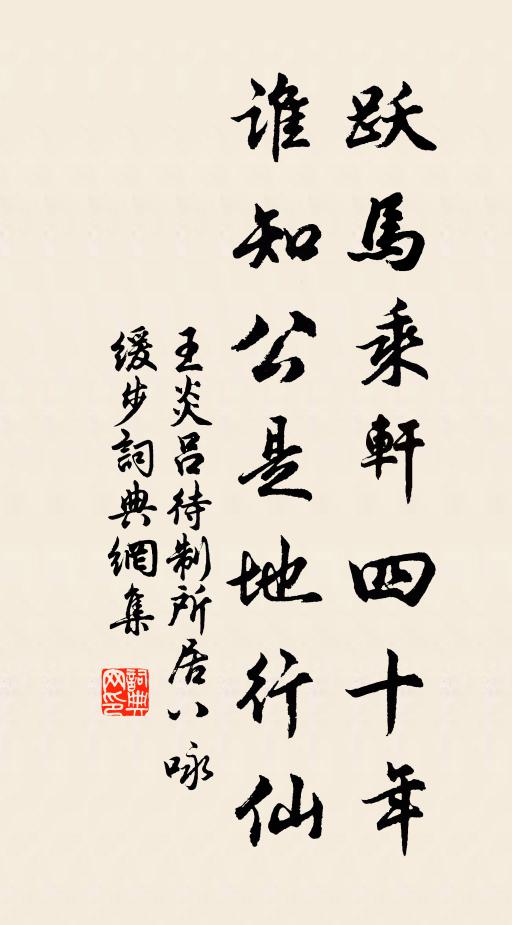 跃馬乘軒四十年
誰知公是地行仙
王炎吕待制所居八咏
缓步詞典網集
詞典网印